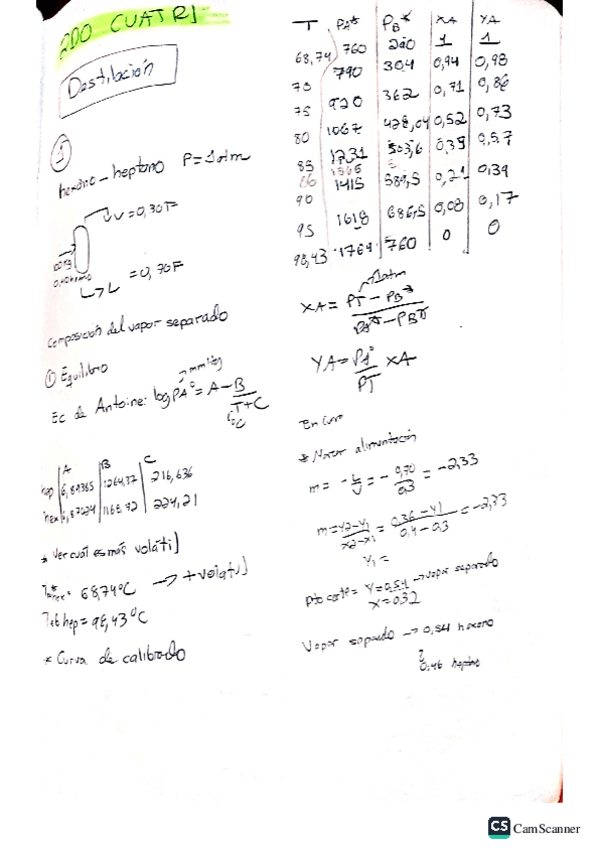 2DO CUATRI
Destilación
①
hexano - heptano P=1atm
V=0,30F
100 Kg
L =0,70F
Composición del vapor separado
① Equilibrio
mmHg
Ec de Antoine: log PA° = A - B
T+C
°C
A B C
hep 6,89385 1264,37 216,636
hex 6,87024 1168,72 224,21
* Ver cuál es más volátil
68,74°C → + volatil
Teb hep = 98,43°C
* Curva de calibrado
T PA* PB* XA YA
68,74 760 280 1 1
70 790 304 0,94 0,98
75 920 362 0,71 0,86
80 1067 428,04 0,52 0,73
85 1231 503,6 0,35 0,57
90 1415 589,5 0,21 0,39
95 1618 686,5 0,08 0,17
98,43 1764 760 0 0
1atm
XA = PT - PB*
PA* - PB*
YA = PA° XA
PT
* Mover alimentación
m = - L = - 0,70 = -2,33
V 0,3
m = y2-y1 = 0,36 - y1 = -2,33
x2-x1 0,4-0,3
y1 =
pto corte = Y=0,54 → vapor separado
X=0,32
Vapor separado → 0,54 hexano
0,46 heptano
CS CamScanner